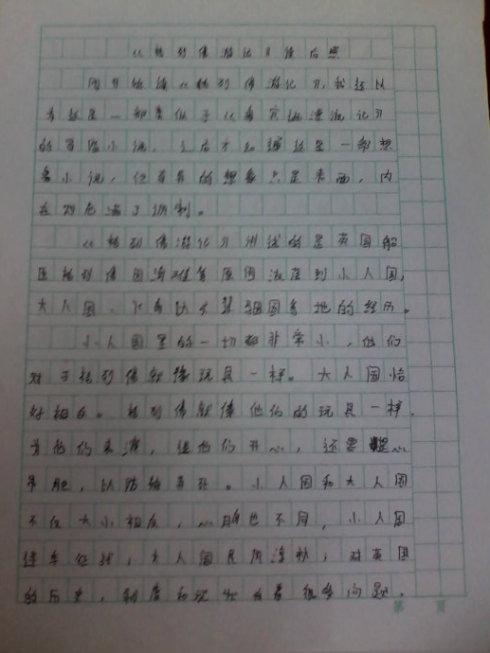 《格列佛游记》读后感
刚开始读《格列佛游记》,我还以
为这是一部类似于《鲁宾逊漂流记》
的冒险小说,之后才知道这是一部想
象小说,但离奇的想象只是表面,内
在则充满了讽刺。
《格列佛游记》讲述的是英国船
医格列佛因海难等原因流落到小人国,
大人国、飞岛以及慧骃国等地的经历。
小人国里的一切都非常小,他们
对于格列佛就像玩具一样。大人国恰
好相反。格列佛就像他们的玩具一样,
为他们表演,让他们开心,还要提心
吊胆,以防给弄死。小人国和大人国
不仅大小相反,心胸也不同,小人国
连年征战,大人国民风淳朴,对英国
的历史,制度和现状有着很多问题。
第 页